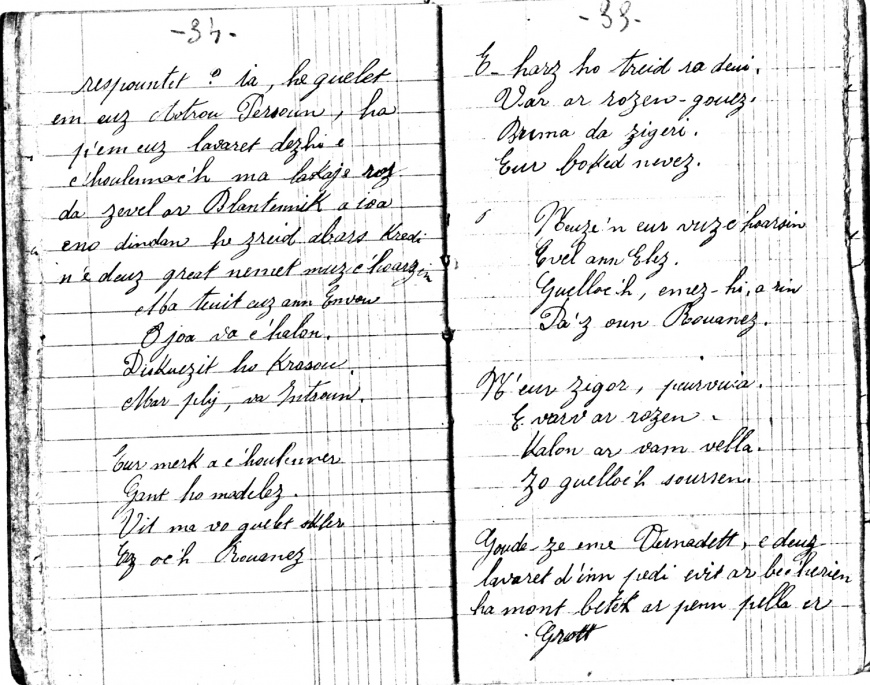 -34-
respountet ? ia, he guelet
em euz Aotrou Persoun, ha
p'em euz lavaret dezhi e
c'houlennac'h ma laskaje roz
da zevel ar Blantennik a ioa
eno dindan he zreid abars Kredi
n'e deuz great nemet muz c'hoarzin
Ma teuit euz ann Envou
O joa va c'halon.
Diskuezit ho Krasou.
Mar plij, va Introun.
Eur merk a c'houlenner
Gant ho madelez.
Vit ma vo guelet skler
Ez oc'h Rouanez
-35-
E- harz ho treid ra deui.
Var ar rozen-gouez.
Brema da zigeri.
Eur boked nevez.
Neuze'n eur vuzc'hoarsin
Evel ann Elez.
Guelloc'h, emez-hi, a rin
Pa'z oun Rouanez.
N'eur zigor, peurvuia.
E varv ar rozen.
Kalon ar vam vella.
Zo guelloc'h soursen.
Goude-ze eme Bernadett, e deuz
lavaret d'inn pedi evit ar bec'herien
ha mont betek ar penn pella er
Grott